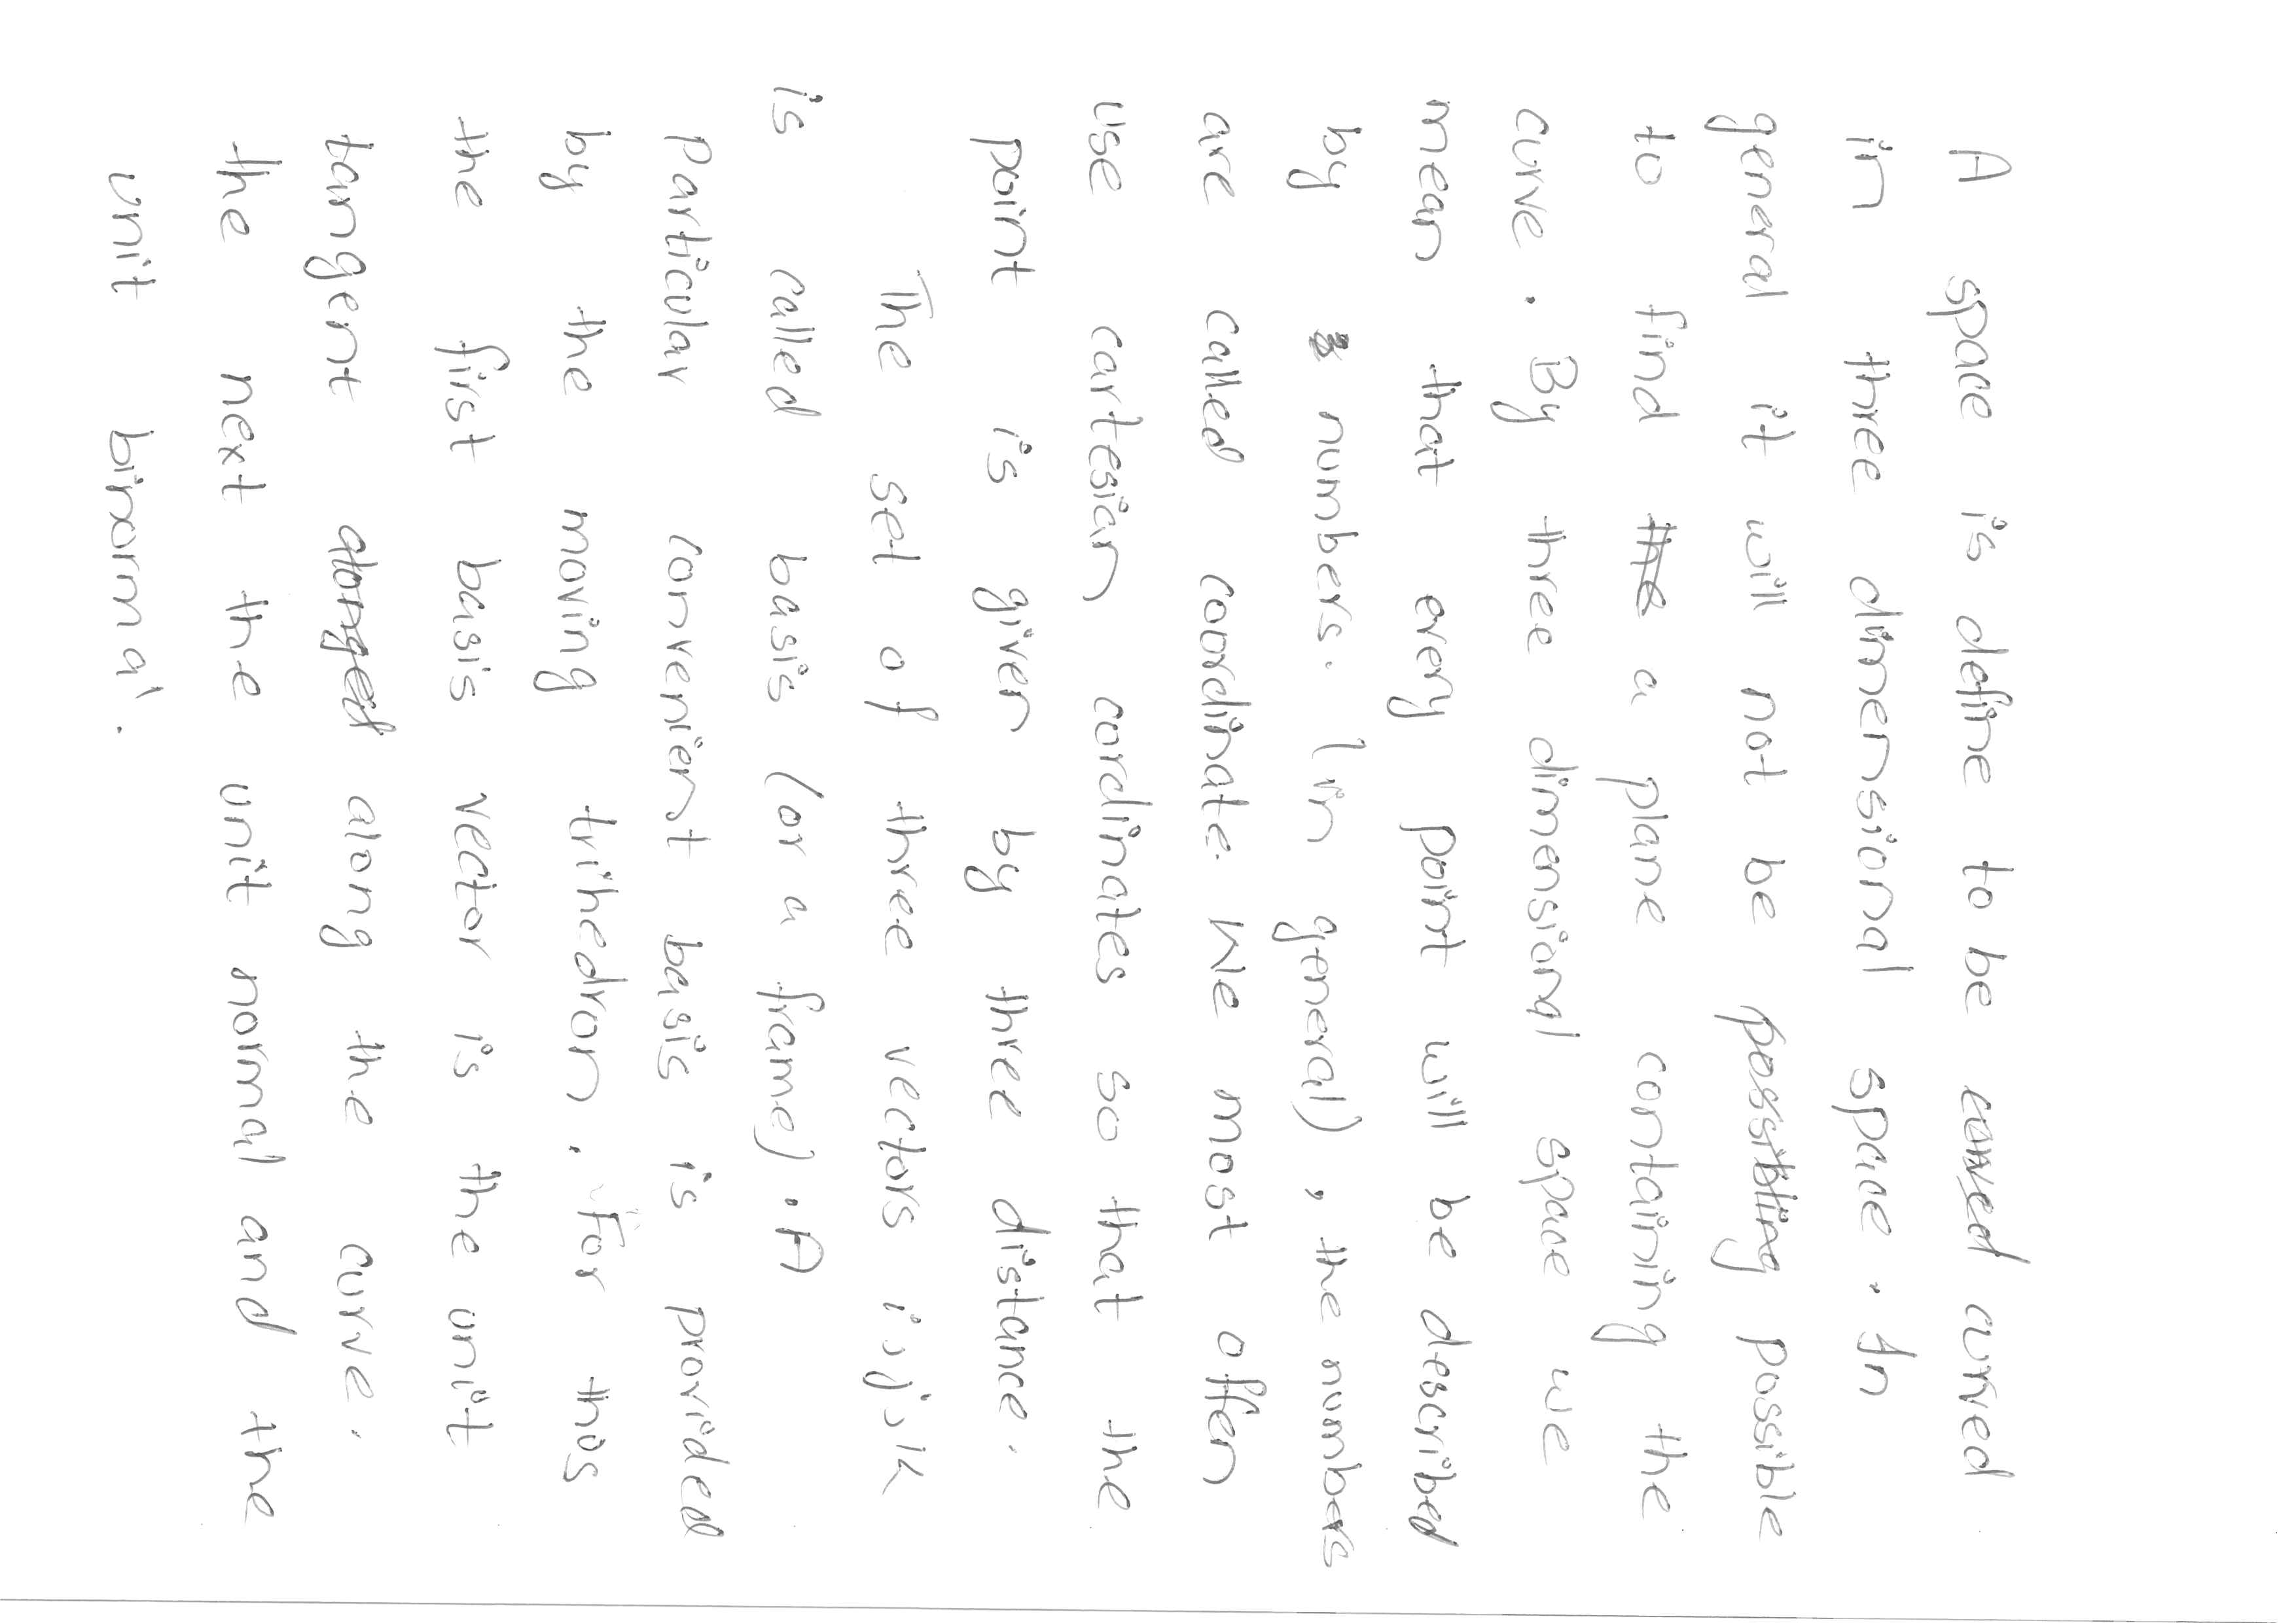 A space is define to be curved
in three dimensional space. In
general it will not be possibling possible
to find the a plane containing the
curve. By three dimensional space we
mean that every point will be described
by 3 numbers. (in general), the numbers
are called coordinate. We most offen
use cartesian cordinates so that the
point is given by three distance.
The set of three vectors i,j,k
is called basis (or a frame). A
Particular convenient basis is provided
by the moving trihedron. For thus
the first basis vector is the unit
tangent alonged along the curve.
the next the unit normal and the
unit binormal.